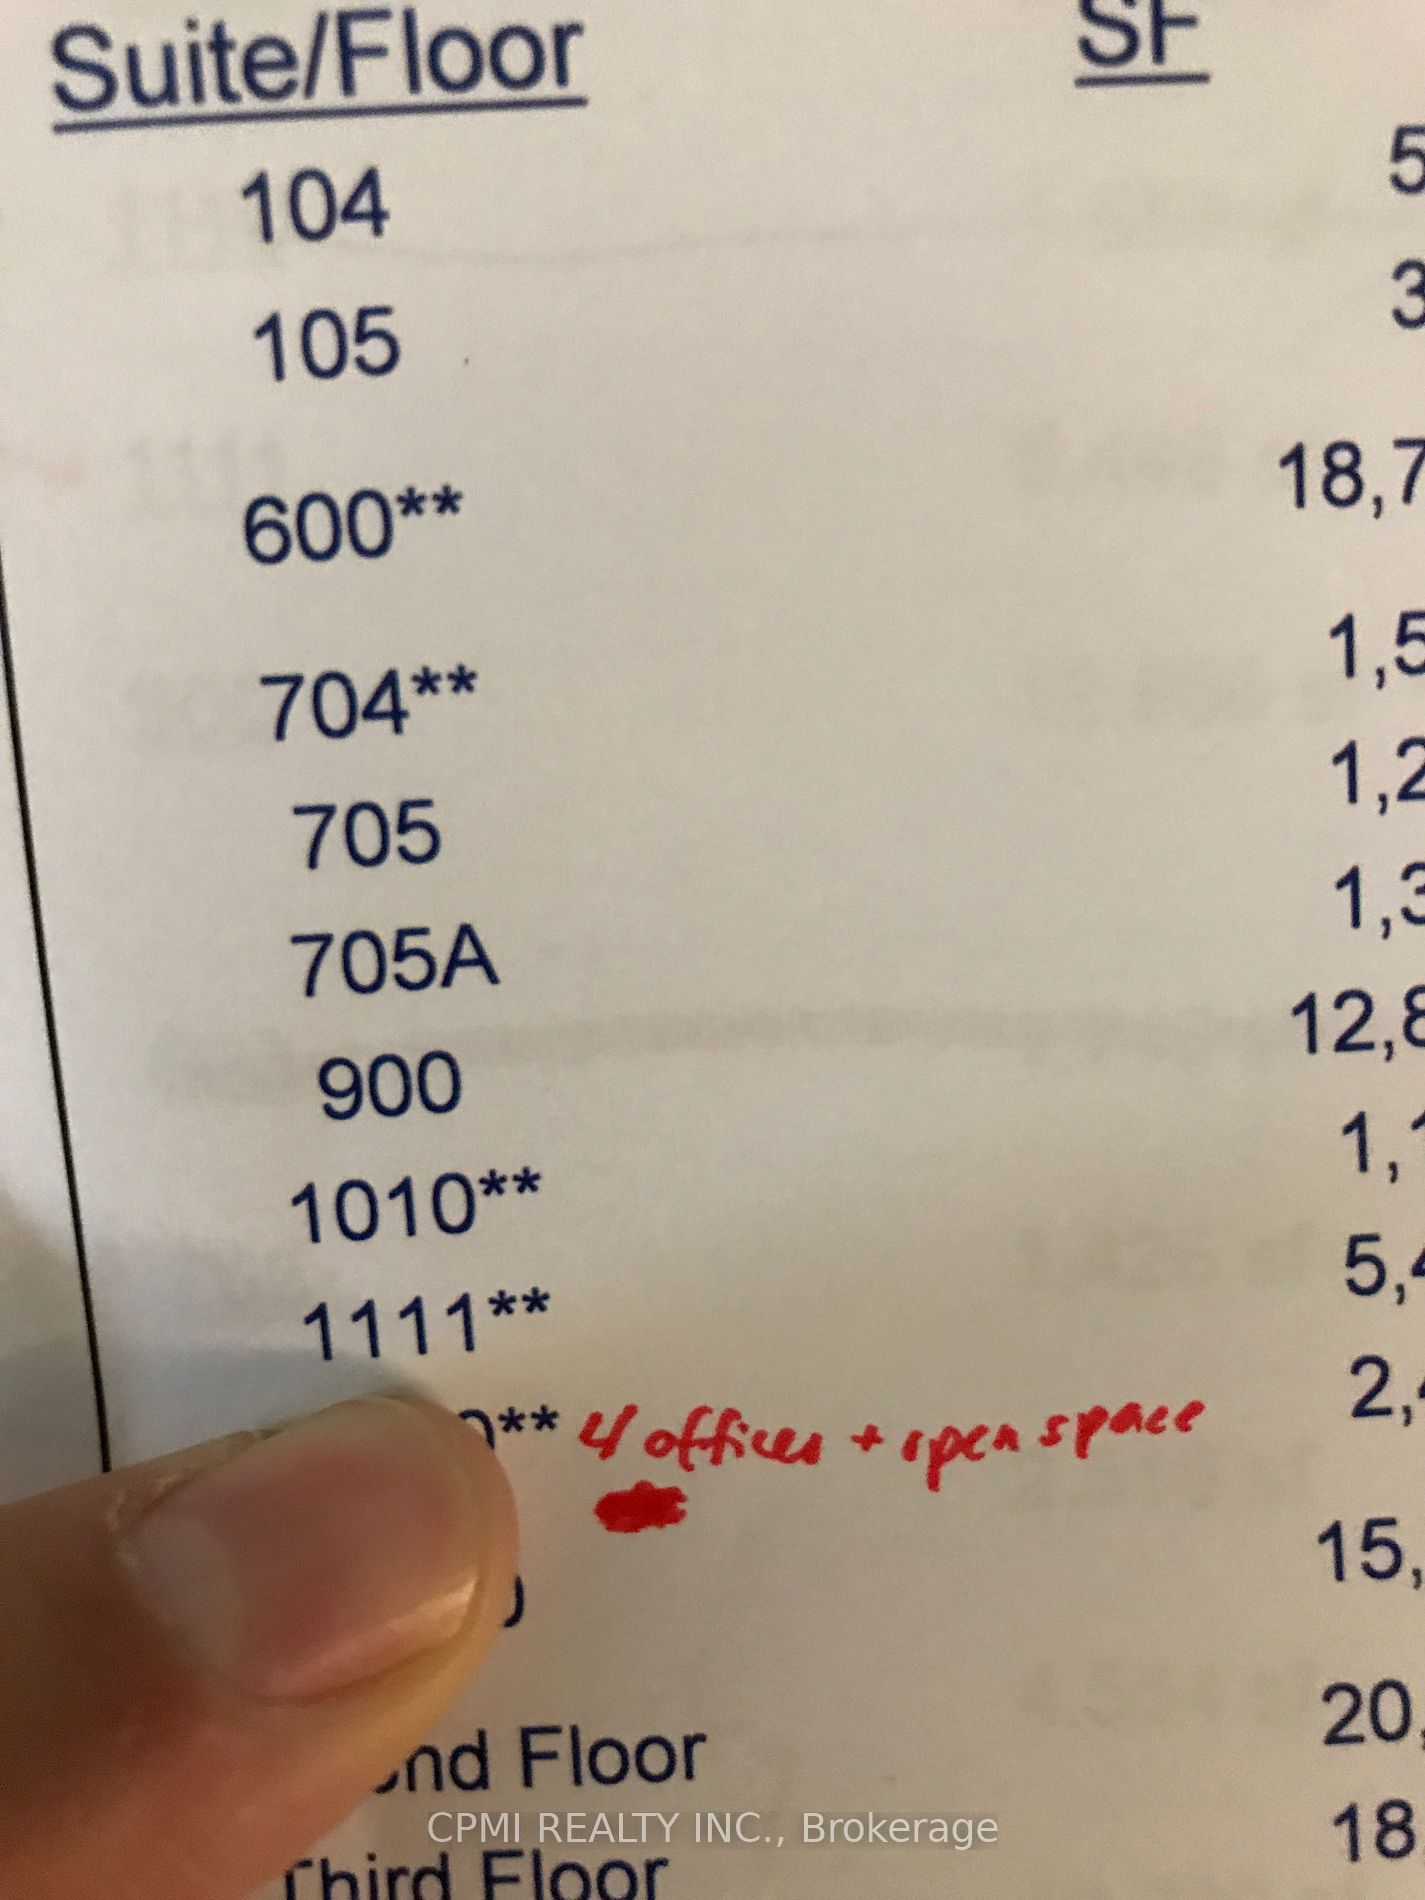 Suite/Floor SF
104 5
105 3
600** 18,7
704** 1,5
705 1,2
705A 1,3
900 12,8
1010** 1,1
1111** 5,4
0** 4 offices + open space 2,4
15,
nd Floor 20,
Third Floor 18
CPMI REALTY INC., Brokerage